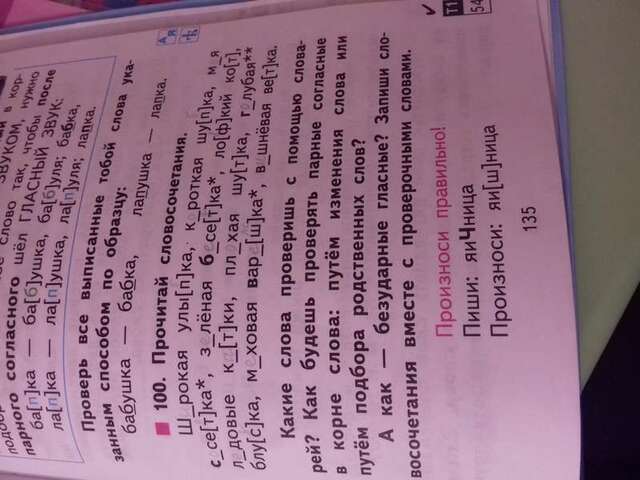 подбор
слово так, чтобы после
парного согласного шёл ГЛАСНЫЙ ЗВУК:
ба[п]ка — ба[б]ушка, ба[б]уля; бабка,
ла[п]ка — ла[п]ушка, ла[п]уля; лапка.
Проверь все выписанные тобой слова ука-
занным способом по образцу:
бабушка — бабка, лапушка — лапка.
100. Прочитай словосочетания.
Ш_рокая улы[п]ка, к_роткая шу[п]ка, м_я
с_се[т]ка*, з_лёная б_се[т]ка* ло[ф]кий ко[т],
л_довые к_[т]ки, пл_хая шу[т]ка, г_лубая**
блу[с]ка, м_ховая вар_[ш]ка*, в_шнёвая ве[т]ка.
Какие слова проверишь с помощью слова-
рей? Как будешь проверять парные согласные
в корне слова: путём изменения слова или
путём подбора родственных слов?
А как — безударные гласные? Запиши сло-
восочетания вместе с проверочными словами.
Произноси правильно!
Пиши: яиЧница
Произноси: яи[ш]ница
135
Т1
54